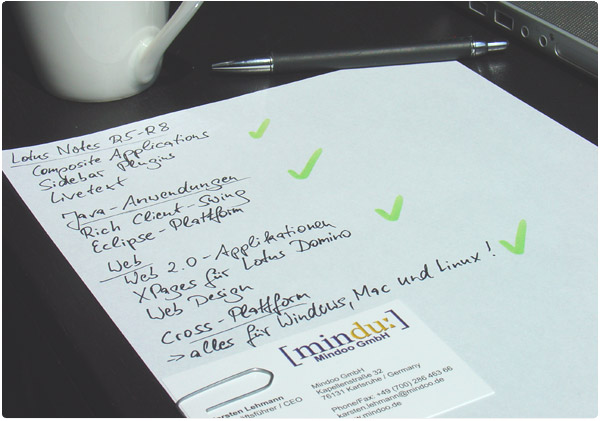 Lotus Notes R5-R8
Composite Applications
Sidebar Plugins
Livetext
Java-Anwendungen
Rich Client-Swing
Eclipse-Plattform
Web
Web 2.0-Applikationen
XPages für Lotus Domino
Web Design
Cross-Plattform
> alles für Windows, Mac und Linux!
[mindu:]
Mindoo GmbH
Mindoo GmbH
Kapellenstraße 32
76131 Karlsruhe / Germany
Phone/Fax: +49 (700) 286 463 66
karsten.lehmann@mindoo.de
www.mindoo.de
arsten Lehmann
äftsführer / CEO